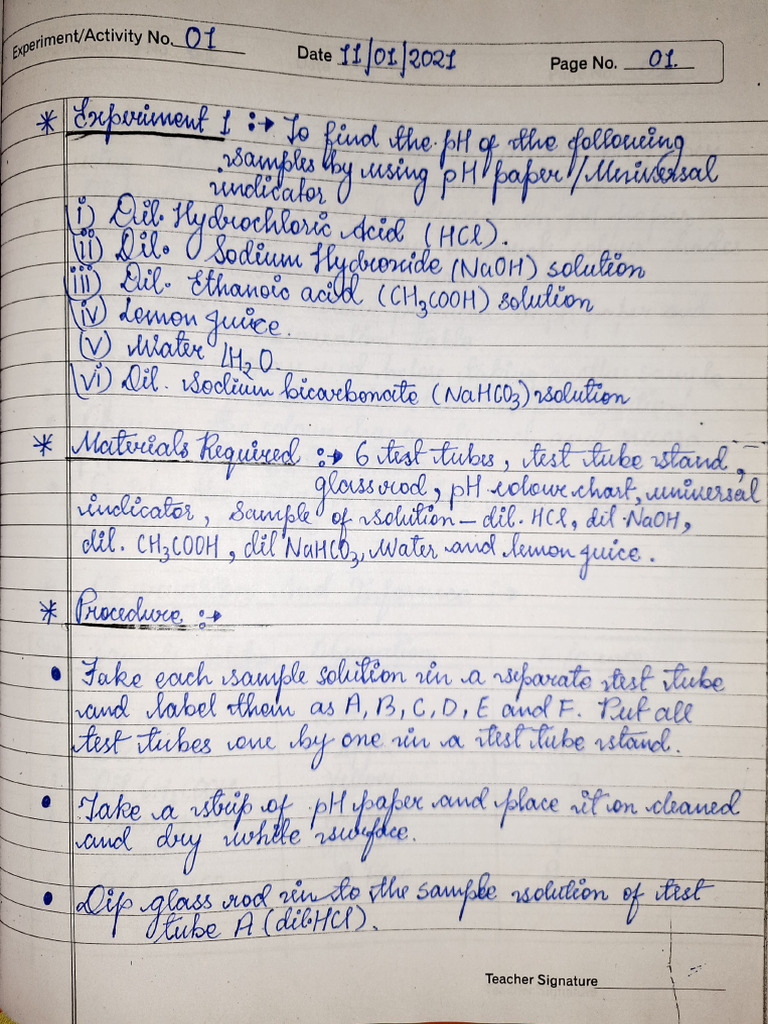 Experiment/Activity No. 01 Date 11/01/2021 Page No. 01.
* Experiment 1 :→ To find the pH of the following
samples by using pH paper/Universal
indicator
i) Dil. Hydrochloric Acid (HCl).
(ii) Dil. Sodium Hydroxide (NaOH) solution
(iii) Dil. Ethanoic acid (CH₃COOH) solution
(iv) Lemon juice.
(v) Water (H₂O.
(vi) Dil. sodium bicarbonate (NaHCO₃) solution
* Materials Required :→ 6 test tubes, test tube stand,
glass rod, pH colour chart, universal
indicator, Sample of solution – dil. HCl, dil. NaOH,
dil. CH₃COOH, dil NaHCO₃, Water and lemon juice.
* Procedure :→
• Take each sample solution in a separate test tube
and label them as A, B, C, D, E and F. Put all
test tubes one by one in a test tube stand.
• Take a strip of pH paper and place it on cleaned
and dry white surface.
• Dip glass rod in to the sample solution of test
tube A (dil. HCl).
Teacher Signature